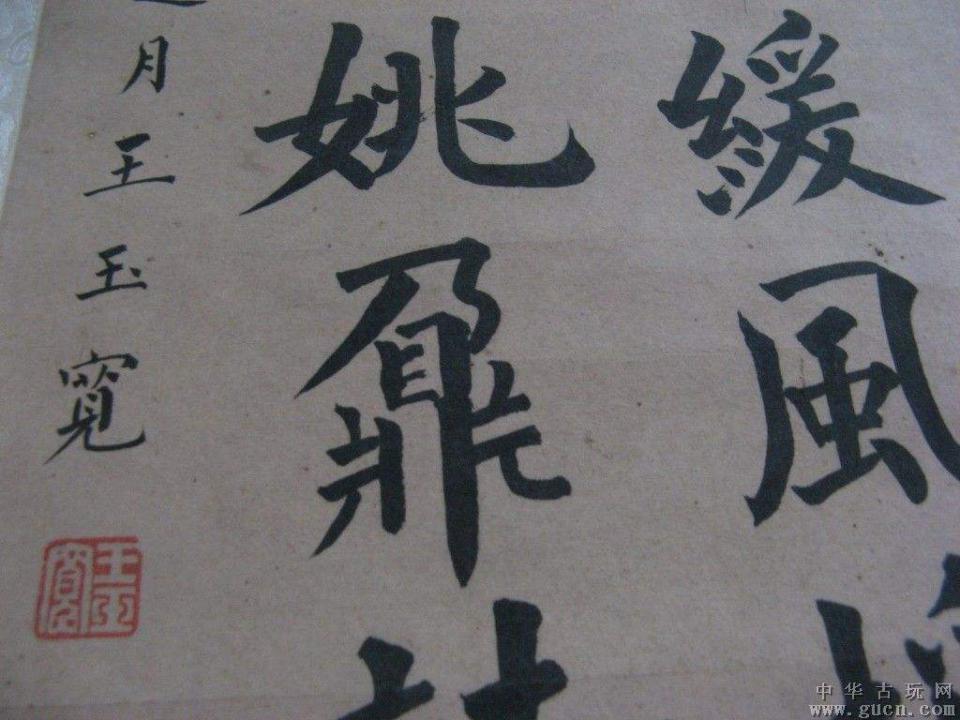 緩風
姚鼐
月王玉寬
王玉寬
中华古玩网
www.gucn.com